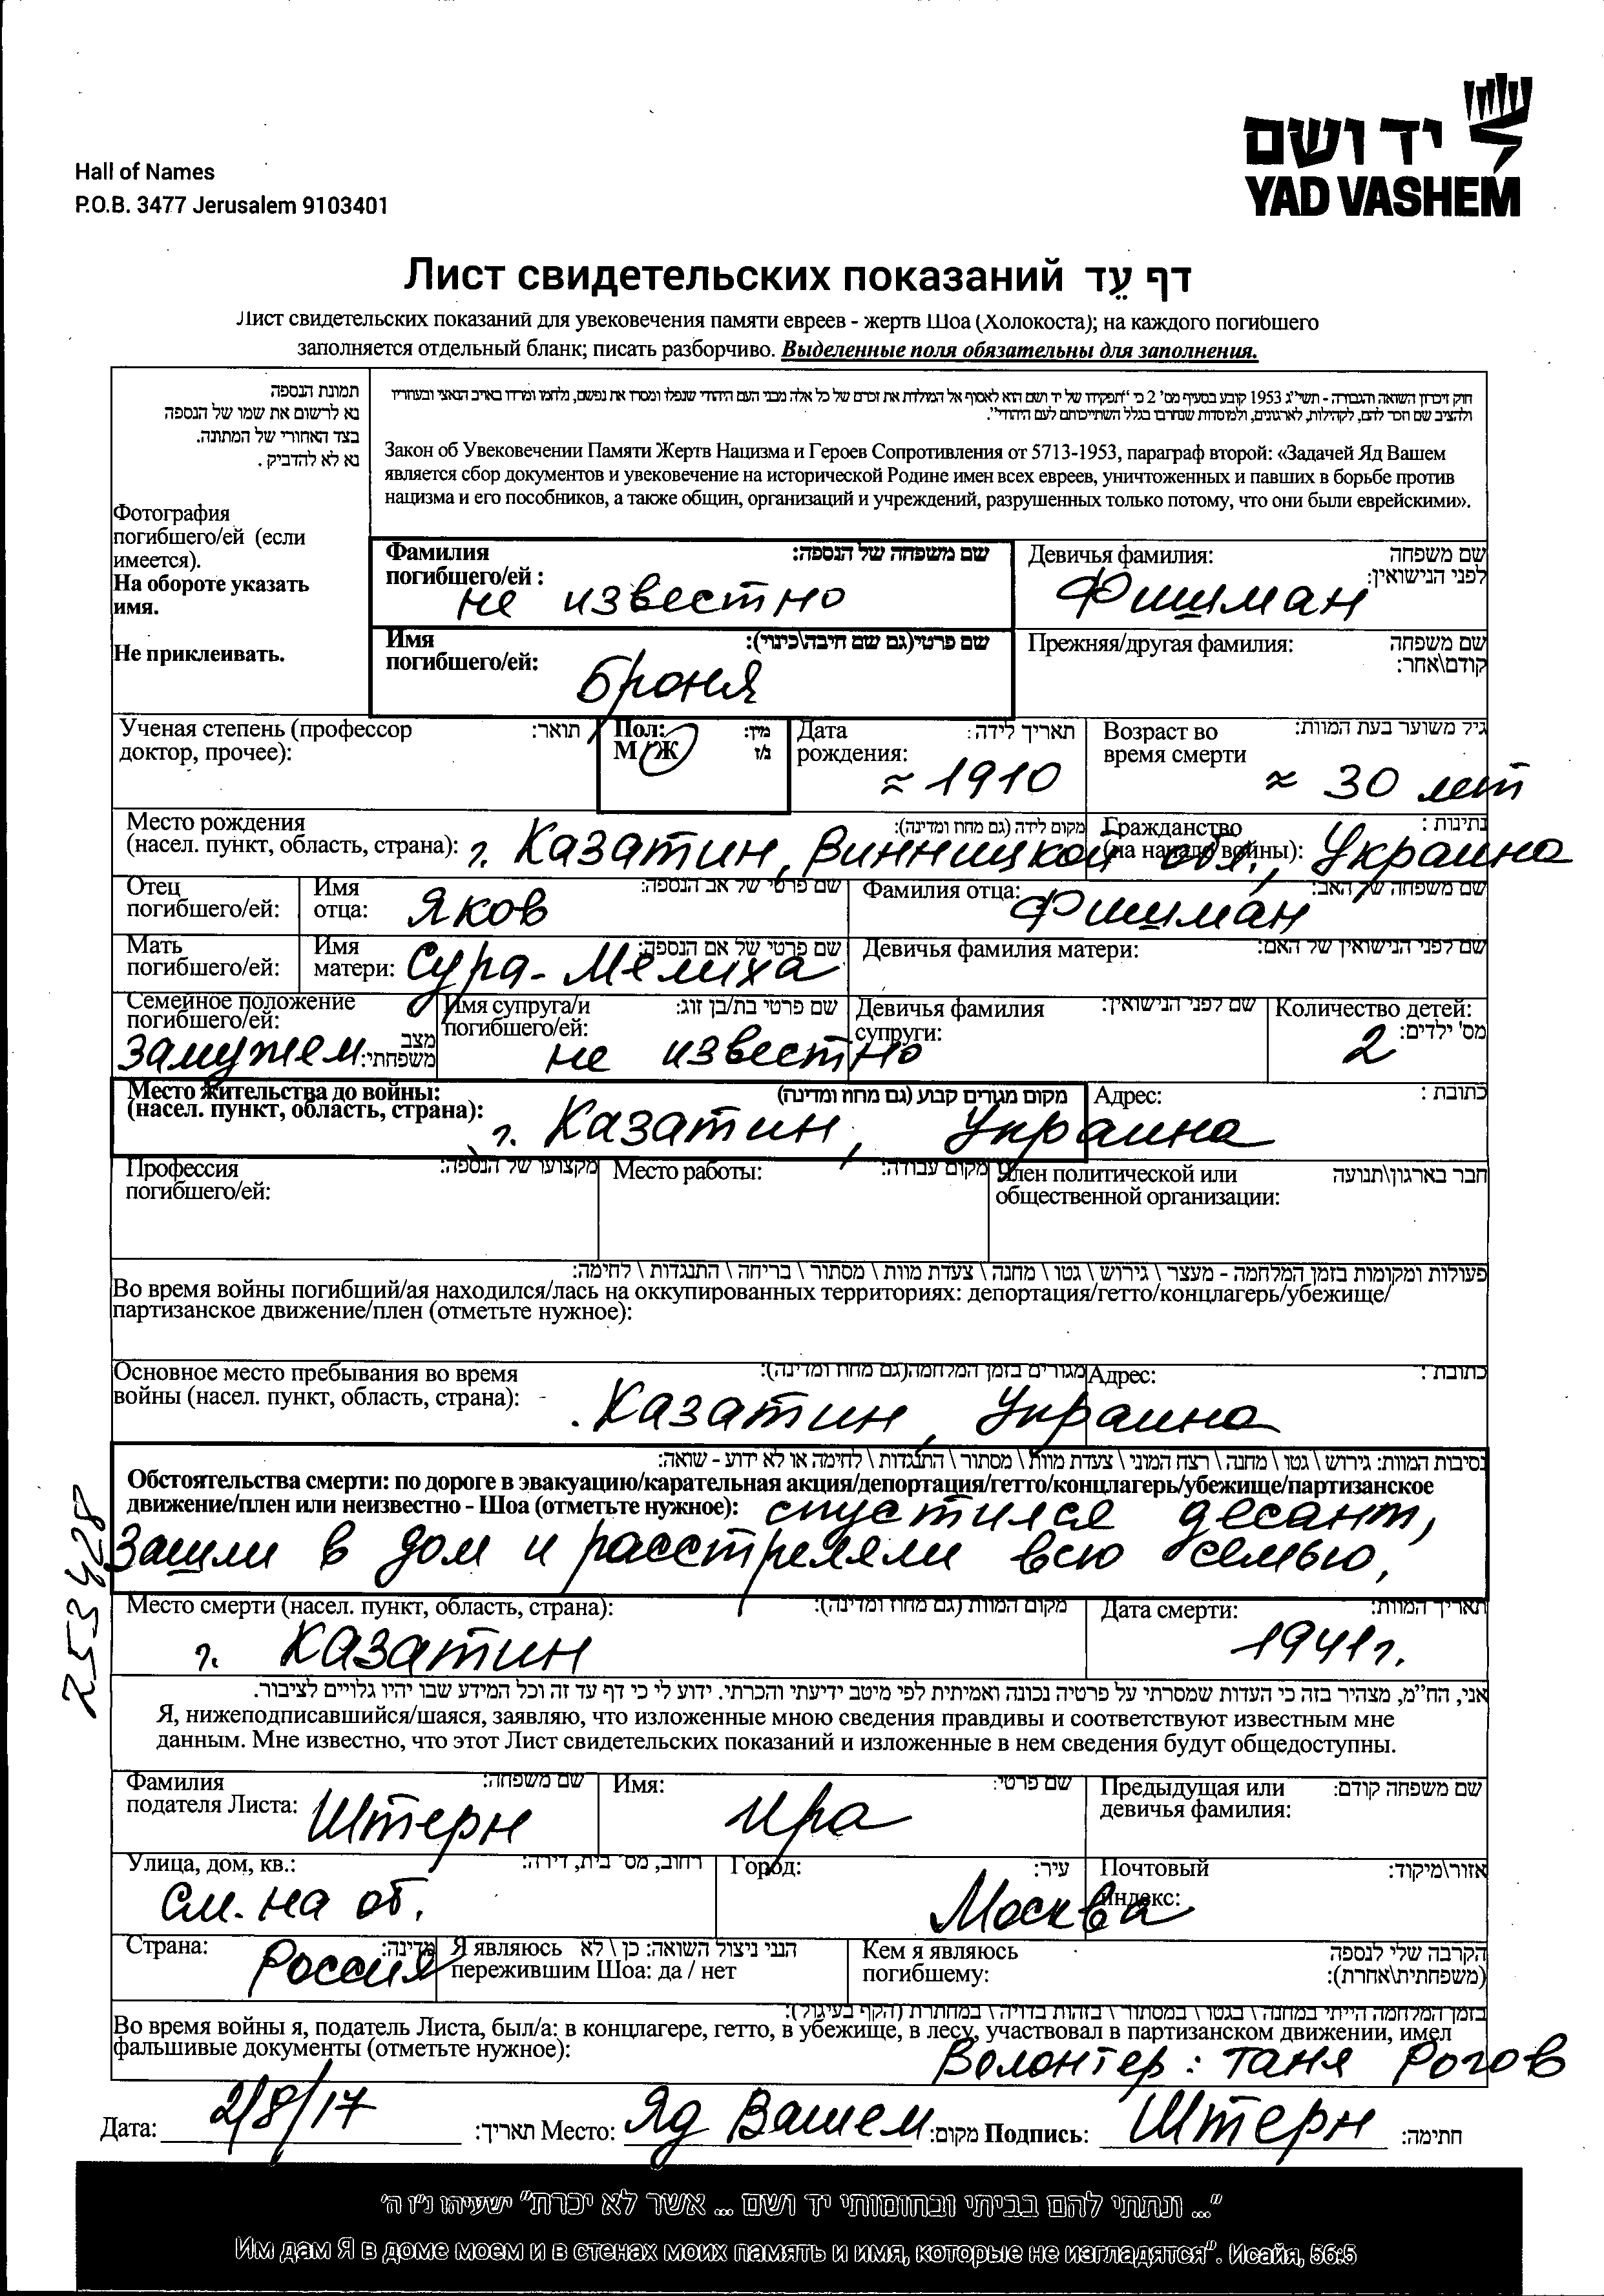 Hall of Names
P.O.B. 3477 Jerusalem 9103401
יד ושם
YAD VASHEM
Лист свидетельских показаний דף עֵד
Лист свидетельских показаний для увековечения памяти евреев - жертв Шоа (Холокоста); на каждого погибшего
заполняется отдельный бланк; писать разборчиво. Выделенные поля обязательны для заполнения.
תמונת הנספה
נא לרשום את שמו של הנספה
בצד האחורי של התמונה.
נא לא להדביק.
Фотография
погибшего/ей (если
имеется).
На обороте указать
имя.
Не приклеивать.
חוק זיכרון השואה והגבורה - תשי"ג 1953 קובע בסעיף מס' 2 כי "תפקידו של יד ושם הוא לאסוף אל המולדת את זכרם של כל אלה מבני העם היהודי שנפלו ומסרו את נפשם, נלחמו ומרדו באויב הנאצי ובעוזריו
ולהציב שם וזכר להם, לקהילות, לארגונים, ולמוסדות שנחרבו בגלל השתייכותם לעם היהודי".
Закон об Увековечении Памяти Жертв Нацизма и Героев Сопротивления от 5713-1953, параграф второй: «Задачей Яд Вашем
является сбор документов и увековечение на исторической Родине имен всех евреев, уничтоженных и павших в борьбе против
нацизма и его пособников, а также общин, организаций и учреждений, разрушенных только потому, что они были еврейскими».
Фамилия שם משפחה של הנספה:
погибшего/ей :
не известно
Девичья фамилия: שם משפחה
לפני הנישואין:
Фишман
Имя שם פרטי(גם שם חיבה\כינוי):
погибшего/ей:
Броня
Прежняя/другая фамилия: שם משפחה
קודם\אחר:
Ученая степень (профессор תואר:
доктор, прочее):
Пол: מין:
М/Ж ז/נ
Дата תאריך לידה:
рождения:
≈ 1910
Возраст во גיל משוער בעת המוות:
время смерти
≈ 30 лет
Место рождения מקום לידה (גם מחוז ומדינה):
(насел. пункт, область, страна): г. Казатин, Винницкой обл., Украина
Гражданство נתינות :
(на начало войны):
Отец
погибшего/ей:
Имя שם פרטי של אב הנספה:
отца: Яков
Фамилия отца: שם משפחה של האב:
Фишман
Мать
погибшего/ей:
Имя שם פרטי של אם הנספה:
матери: Сура-Мелиха
Девичья фамилия матери: שם לפני הנישואין של האם:
Семейное положение
погибшего/ей: מצב
משפחתי:
замужем
Имя супруга/и שם פרטי בת/בן זוג:
погибшего/ей:
не известно
Девичья фамилия שם לפני הנישואין:
супруги:
Количество детей:
מס' ילדים:
2
Место жительства до войны: מקום מגורים קבוע (גם מחוז ומדינה)
(насел. пункт, область, страна):
г. Казатин, Украина
Адрес: כתובת :
Профессия מקצועו של הנספה:
погибшего/ей:
Место работы: מקום עבודה:
Член политической или חבר בארגון\תנועה
общественной организации:
פעולות ומקומות בזמן המלחמה - מעצר \ גירוש \ גטו \ מחנה \ צעדת מוות \ מסתור \ בריחה \ התנגדות \ לחימה:
Во время войны погибший/ая находился/лась на оккупированных территориях: депортация/гетто/концлагерь/убежище/
партизанское движение/плен (отметьте нужное):
Основное место пребывания во время מגורים בזמן המלחמה(גם מחוז ומדינה):
войны (насел. пункт, область, страна):
Казатин, Украина
Адрес: כתובת :
נסיבות המוות: גירוש \ גטו \ מחנה \ רצח המוני \ צעדת מוות \ מסתור \ התנגדות \ לחימה או לא ידוע - שואה:
Обстоятельства смерти: по дороге в эвакуацию/карательная акция/депортация/гетто/концлагерь/убежище/партизанское
движение/плен или неизвестно - Шоа (отметьте нужное): спустился десант,
Зашли в дом и расстреляли всю семью,
2553428
Место смерти (насел. пункт, область, страна): מקום המוות (גם מחוז ומדינה):
г. Казатин
Дата смерти: תאריך המוות:
1941г.
אני, הח"מ, מצהיר בזה כי העדות שמסרתי על פרטיה נכונה ואמיתית לפי מיטב ידיעתי והכרתי. ידוע לי כי דף עד זה וכל המידע שבו יהיו גלויים לציבור.
Я, нижеподписавшийся/шаяся, заявляю, что изложенные мною сведения правдивы и соответствуют известным мне
данным. Мне известно, что этот Лист свидетельских показаний и изложенные в нем сведения будут общедоступны.
Фамилия שם משפחה:
подателя Листа: Штерн
Имя: שם פרטי:
Ира
Предыдущая или שם משפחה קודם:
девичья фамилия:
Улица, дом, кв.: רחוב, מס' בית, דירה:
См. на об.
Город: עיר:
Москва
Почтовый אזור\מיקוד:
индекс:
Страна: מדינה:
Россия
Я являюсь הנני ניצול השואה: כן \ לא
пережившим Шоа: да / нет
Кем я являюсь הקרבה שלי לנספה
погибшему: (משפחתית\אחרת):
בזמן המלחמה הייתי במחנה \ בגטו \ במסתור \ בזהות בדויה \ במחתרת (הקף בעיגול):
Во время войны я, податель Листа, был/а: в концлагере, гетто, в убежище, в лесу, участвовал в партизанском движении, имел
фальшивые документы (отметьте нужное):
Волонтер: Таня Рогов
Дата: 2/8/17 תאריך: Место: Яд Вашем מקום: Подпись: Штерн חתימה:
"... ונתתי להם בביתי ובחומותי יד ושם ... אשר לא יכרת" ישעיהו נ"ו ה'
Им дам Я в доме моем и в стенах моих память и имя, которые не изгладятся". Исайя, 56:5